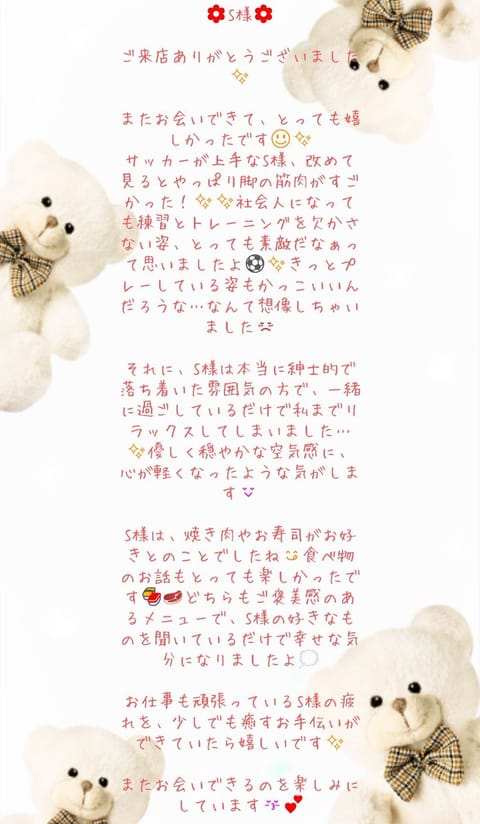 S様
ご来店ありがとうございました
✨
またお会いできて、とっても嬉
しかったです😃✨
サッカーが上手なS様、改めて
見るとやっぱり脚の筋肉がすご
かった！✨✨社会人になって
も練習とトレーニングを欠かさ
ない姿、とっても素敵だなぁっ
て思いましたよ⚽✨きっとプ
レーしている姿もかっこいいん
だろうな…なんて想像しちゃい
ました
それに、S様は本当に紳士的で
落ち着いた雰囲気の方で、一緒
に過ごしているだけで私までリ
ラックスしてしまいました…
✨優しく穏やかな空気感に、
心が軽くなったような気がしま
す
S様は、焼き肉やお寿司がお好
きとのことでしたね食べ物
のお話もとっても楽しかったで
す🍣🥩どちらもご褒美感のあ
るメニューで、S様の好きなも
のを聞いているだけで幸せな気
分になりましたよ💭
お仕事も頑張っているS様の疲
れを、少しでも癒すお手伝いが
できていたら嬉しいです✨
またお会いできるのを楽しみに
しています💕